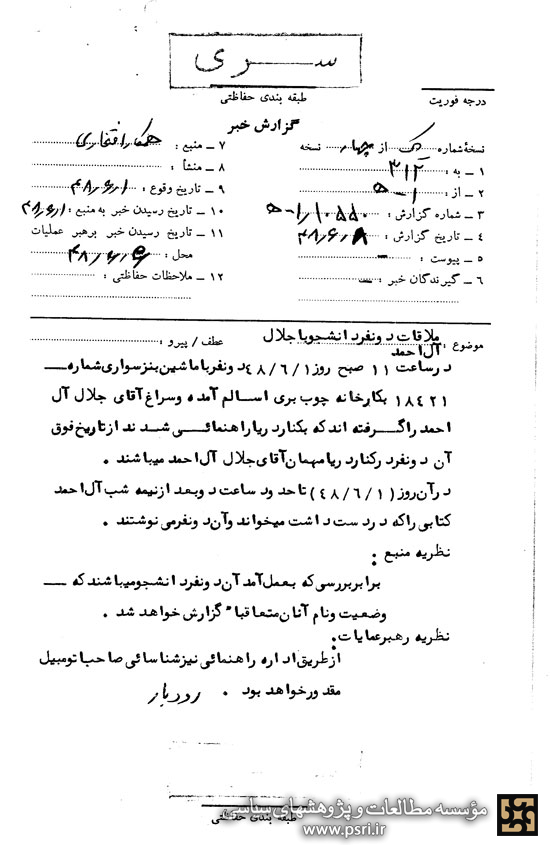 سری
طبقه بندی حفاظتی
درجه فوریت
گزارش خبر
نسخه شماره یک از چهار نسخه
۱ ـ به : ۳۱۲
۲ ـ از : ۱ـ ه
۳ ـ شماره گزارش :
۴ ـ تاریخ گزارش : ۴۸٫۶٫۸
۵ ـ پیوست : ـ
۶ ـ گیرندگان خبر : ـ
۷ ـ منبع : همکار افتخاری
۸ ـ منشأ :
۹ ـ تاریخ وقوع : ۴۸٫۶٫۱
۱۰ ـ تاریخ رسیدن خبر به منبع : ۴۸٫۶٫۱
۱۱ ـ تاریخ رسیدن خبر برهبر عملیات
محل : ۴۸٫۶٫۵
۱۲ ـ ملاحظات حفاظتی :
موضوع : ملاقات دونفردانشجوباجلال
آل احمد
عطف / پیرو :
درساعت ۱۱ صبح روز ۴۸/۶/۱ دونفرباماشین بنزسواری شماره ــ
۱۸۴۲۱ بکارخانه چوب بری اسالم آمده وسراغ آقای جلال آل
احمد راگرفته اند که بکناردریاراهنمائی شدند ازتاریخ فوق
آن دونفردرکناردریامهمان آقای جلال آل احمد میباشند .
درآن روز (۴۸/۶/۱) تاحدود ساعت دوبعد ازنیمه شب آل احمد
کتابی راکه دردست داشت میخواند وآن دونفرمی نوشتند .
نظریه منبع :
برابربررسی که بعمل آمد آن دونفردانشجومیباشند که ــ
وضعیت ونام آنان متعاقبا" گزارش خواهد شد .
نظریه رهبرعملیات :
ازطریق اداره راهنمائی نیزشناسائی صاحب اتومبیل
مقدورخواهد بود . رودبار
مؤسسه مطالعات و پژوهشهای سیاسی
www.psri.ir
طبقه بندی حفاظتی